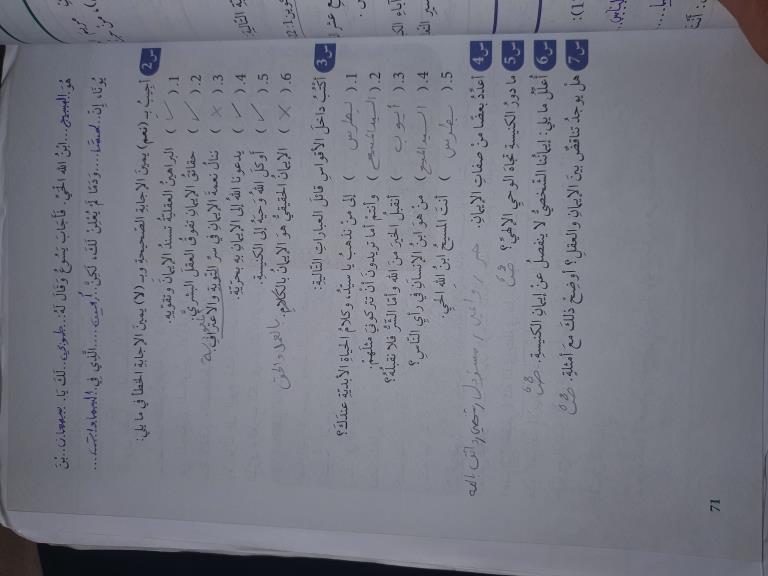 هُوَ المسيح ابْنُ الله الحَيِّ. فَأَجَابَ يَسُوعُ وَقَالَ لَهُ: طوبى لَكَ يَا سمعان بْنَ
يُونَا، إِنَّ لحمًا وَدَمًا لَمْ يُعْلِنْ لَكَ، لَكِنَّ أبي الَّذِي فِي السماوات
س2 أجيبُ بِـ (نعم) يمينَ الإجابةِ الصّحيحةِ وبـِ (لا) يمينَ الإجابةِ الخطأ في ما يلي:
1. ( ✓ ) البراهينُ العقليّةُ تسندُ الإيمانَ وتقوّيه.
2. ( ✓ ) حقائقُ الإيمانِ تفوقُ العقلَ البشريَّ.
3. ( × ) ننالُ نعمةَ الإيمانِ في سرِّ التّوبةِ والاعترافِ.
4. ( ✓ ) يدعونا اللهُ إلى الإيمانِ بهِ بحرّيّةٍ.
5. ( ✓ ) أوكلَ اللهُ وَحْيَهُ إلى الكنيسةِ.
6. ( × ) الإيمانُ الحقيقيُّ هوَ الإيمانُ بالكلامِ. بالعمل والحق
س3 أكتبُ داخلَ الأقواسِ قائلَ العباراتِ التّاليةِ:
1. ( بطرس ) إلى مَنْ نذهبُ يا سيّدُ، وكلامُ الحياةِ الأبديّةِ عندَكَ؟
2. ( السيد المسيح ) وأنتمْ أما تريدونَ أنْ تتركوني مثلَهم.
3. ( أيوب ) أنقبلُ الخيرَ منَ اللهِ وأمّا الشّرُّ فلا نقبلُهُ؟
4. ( السيد المسيح ) مَنْ هوَ ابنُ الإنسانِ في رأيِ النّاسِ؟
5. ( بطرس ) أنتَ المسيحُ ابنُ اللهِ الحيِّ.
س4 أعدّدُ بعضًا منْ صفاتِ الإيمانِ.
س5 ما دورُ الكنيسةِ تجاهَ الوحيِ الإلهيِّ؟
س6 أعلّلُ ما يلي: إيمانُنا الشّخصيُّ لا ينفصلُ عنْ إيمانِ الكنيسةِ.
س7 هلْ يوجدُ تناقضٌ بينَ الإيمانِ والعقلِ؟ أوضحُ ذلكَ معَ أمثلةٍ.
71